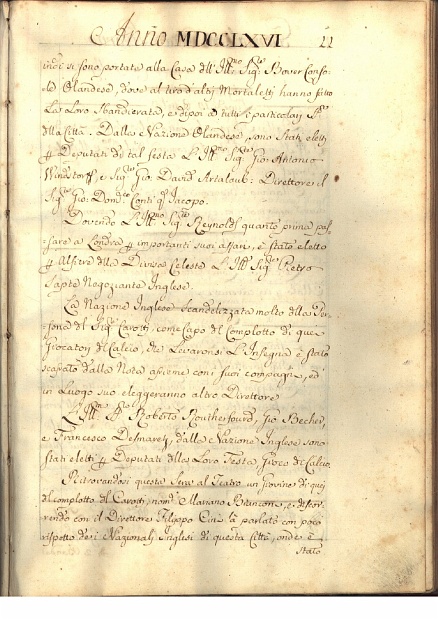 Anno MDCCLXVI 22
indi si sono portata alla Casa dell' Ill.mo Sig.re Bover Conso-
le Olandese, dove al tiro d'altri Mortaletti hanno fatto
La Loro Sbandierata, e di poi a tutti i particolari
della Città. Dalla Nazione Olandese, sono Stati eletti
p Deputati di tal festa L'Ill.mo Sig.re Gio: Antonio
Winstorff, e Sig.re Gio: David Artalaub: Direttore il
Sig.re Gio: Dom.co Conti q.m Jacopo.
Dovendo L'Ill.mo Sig.re Reynolds quanto prima pas-
sare a Londra p importanti suoi affari, è stato eletto
p Alfiere della Divisa Celeste L'Ill.mo Sig.re Pietro
Sapte Negoziante Inglese.
La Nazione Inglese Scandelizzata molto della Per-
sona del Sig.re Carotti, come Capo del Complotto di quei
Giocatori del Calcio, che Levaronsi L'Insegna è stato
scassato dalla Nota assieme con suoi compagni, ed
in Luogo suo eleggeranno altro Direttore
L'Ill.mi SS.ri Roberto Routherfourd, Gio Becher,
e Francesco Desmarets, dalla Nazione Inglese sono
stati eletti p Deputati della Loro Festa, Gioco del Calcio.
Ritrovandosi questa Sera al Teatro un Giovine di quei
del complotto del Carotti, nom.to Mariano Bitancon, e discor-
rendo con il Direttore Filippo Cini, à parlato con poco
rispetto dei Nazionali Inglesi di questa Città, onde è
stato